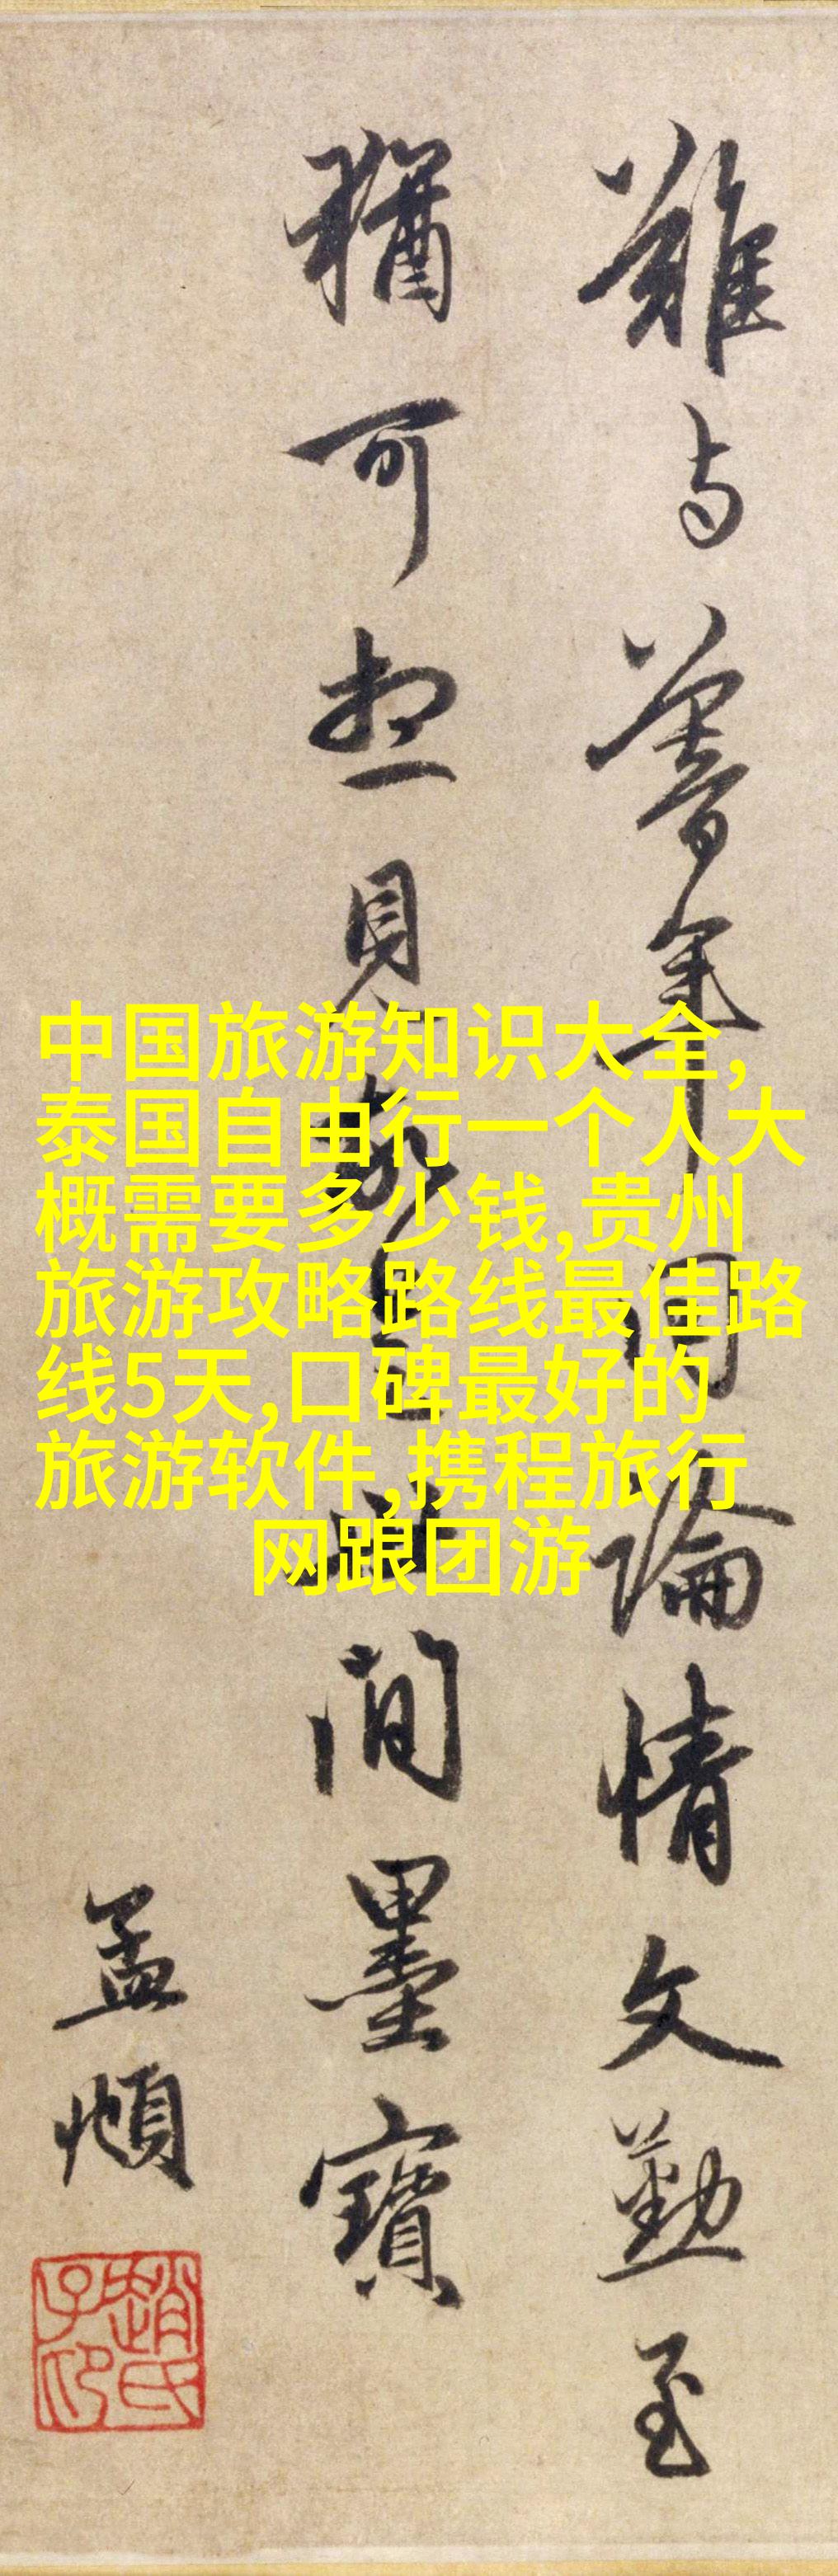 難与年同論情文勤至
猶可想見世間墨寶
孟頫
趙氏子昂
中国旅游知识大全,
泰国自由行一个人大
概需要多少钱,贵州
旅游攻略路线最佳路
线5天,口碑最好的
旅游软件,携程旅行
网跟团游